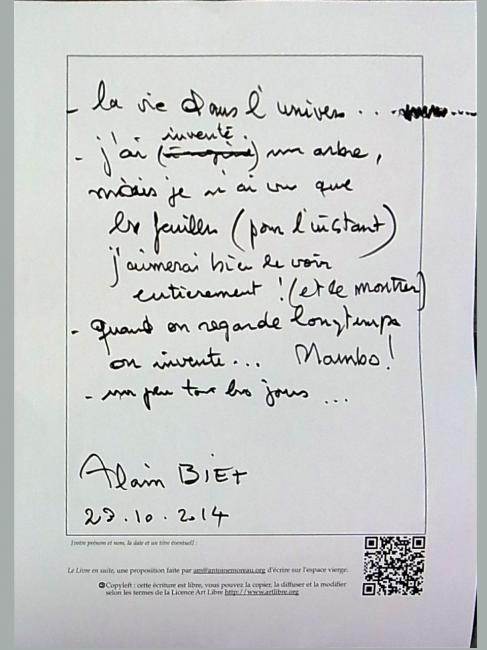 - la vie dans l'univers ...
inventé.
- j'ai (imaginé) un arbre,
mais je n'ai vu que
les feuilles (pour l'instant)
j'aimerai bien le voir
entièrement ! (et le montrer)
- quand on regarde longtemps
on invente ... Mambo !
- un peu tous les jours ...
Alain BIET
29.10.2014
[votre prénom et nom, la date et un titre éventuel] :
Le Livre en suite, une proposition faite par am@antoinemoreau.org d'écrire sur l'espace vierge.
Copyleft : cette écriture est libre, vous pouvez la copier, la diffuser et la modifier
selon les termes de la Licence Art Libre http://www.artlibre.org